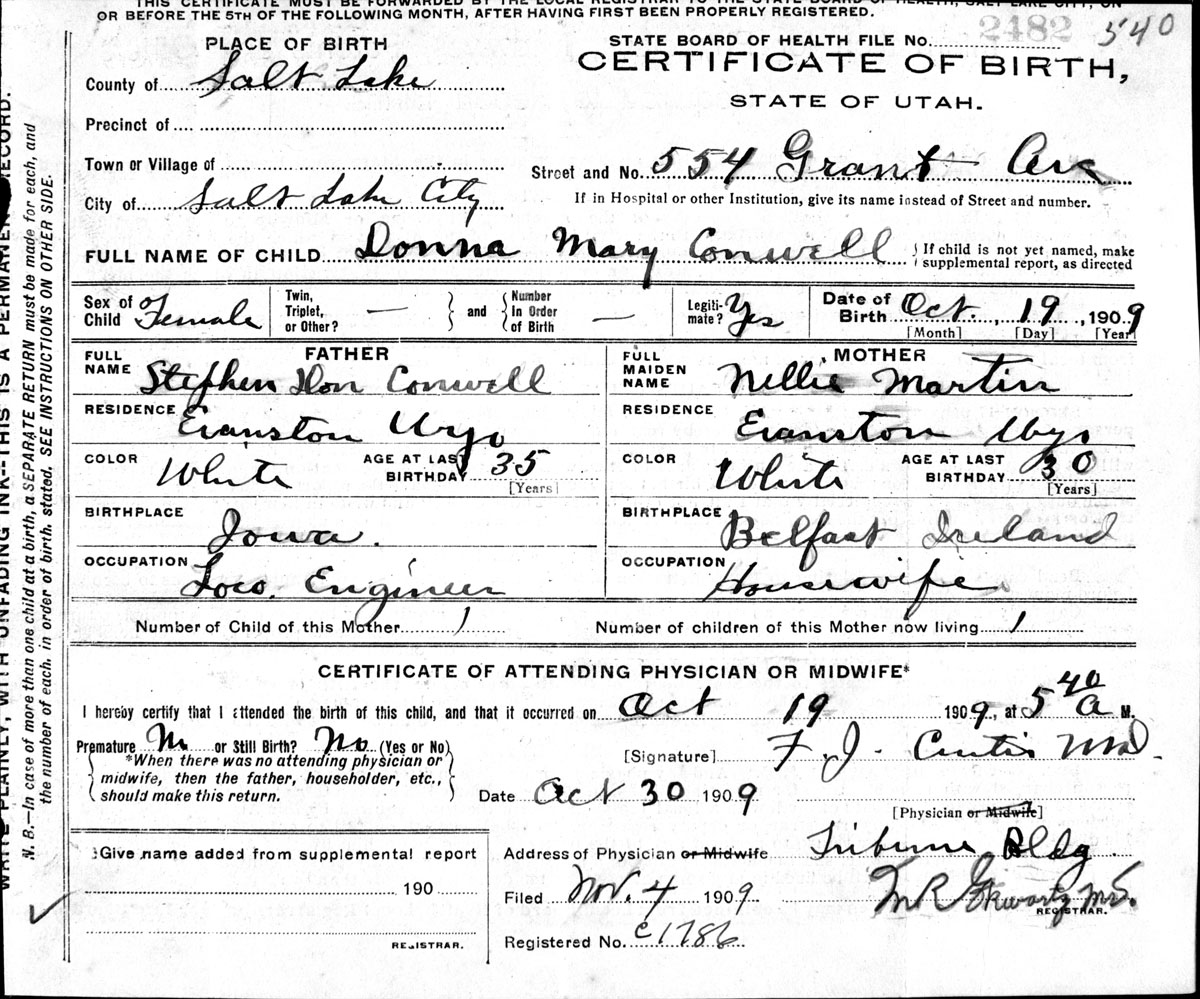 THIS CERTIFICATE MUST BE FORWARDED BY THE LOCAL REGISTRAR TO THE STATE BOARD OF HEALTH, SALT LAKE CITY, ON
OR BEFORE THE 5TH OF THE FOLLOWING MONTH, AFTER HAVING FIRST BEEN PROPERLY REGISTERED.
PLACE OF BIRTH
County of Salt Lake
Precinct of
Town or Village of
City of Salt Lake City
STATE BOARD OF HEALTH FILE No. 2482 540
CERTIFICATE OF BIRTH,
STATE OF UTAH.
Street and No. 554 Grant Ave
If in Hospital or other Institution, give its name instead of Street and number.
FULL NAME OF CHILD Donna Mary Conwell { If child is not yet named, make
supplemental report, as directed
Sex of Child Female Twin, Triplet, or Other? — } and { Number In Order of Birth — Legiti-mate? Yes Date of Birth Oct. , 19 , 1909
[Month] [Day] [Year]
FATHER
FULL NAME Stephen Don Conwell
RESIDENCE Evanston Wyo
COLOR White AGE AT LAST BIRTHDAY 35
[Years]
BIRTHPLACE Iowa.
OCCUPATION Loco. Engineer
MOTHER
FULL MAIDEN NAME Nellie Martin
RESIDENCE Evanston Wyo
COLOR White AGE AT LAST BIRTHDAY 30
[Years]
BIRTHPLACE Belfast Ireland
OCCUPATION Housewife
Number of Child of this Mother 1 Number of children of this Mother now living 1
CERTIFICATE OF ATTENDING PHYSICIAN OR MIDWIFE*
I hereby certify that I attended the birth of this child, and that it occurred on Oct 19 1909, at 5 40 a M.
Premature No or Still Birth? No (Yes or No)
{ *When there was no attending physician or
midwife, then the father, householder, etc.,
should make this return. }
[Signature] F. J. Curtis MD.
Date Oct 30 1909
[Physician or Midwife]
Give name added from supplemental report
190
REGISTRAR.
Address of Physician or Midwife Tribune Bldg
Filed Nov. 4 1909
REGISTRAR.
Registered No. c1786
WRITE PLAINLY, WITH UNFADING INK--THIS IS A PERMANENT RECORD.
N. B.—In case of more than one child at a birth, a SEPARATE RETURN must be made for each, and
the number of each, in order of birth, stated. SEE INSTRUCTIONS ON OTHER SIDE.